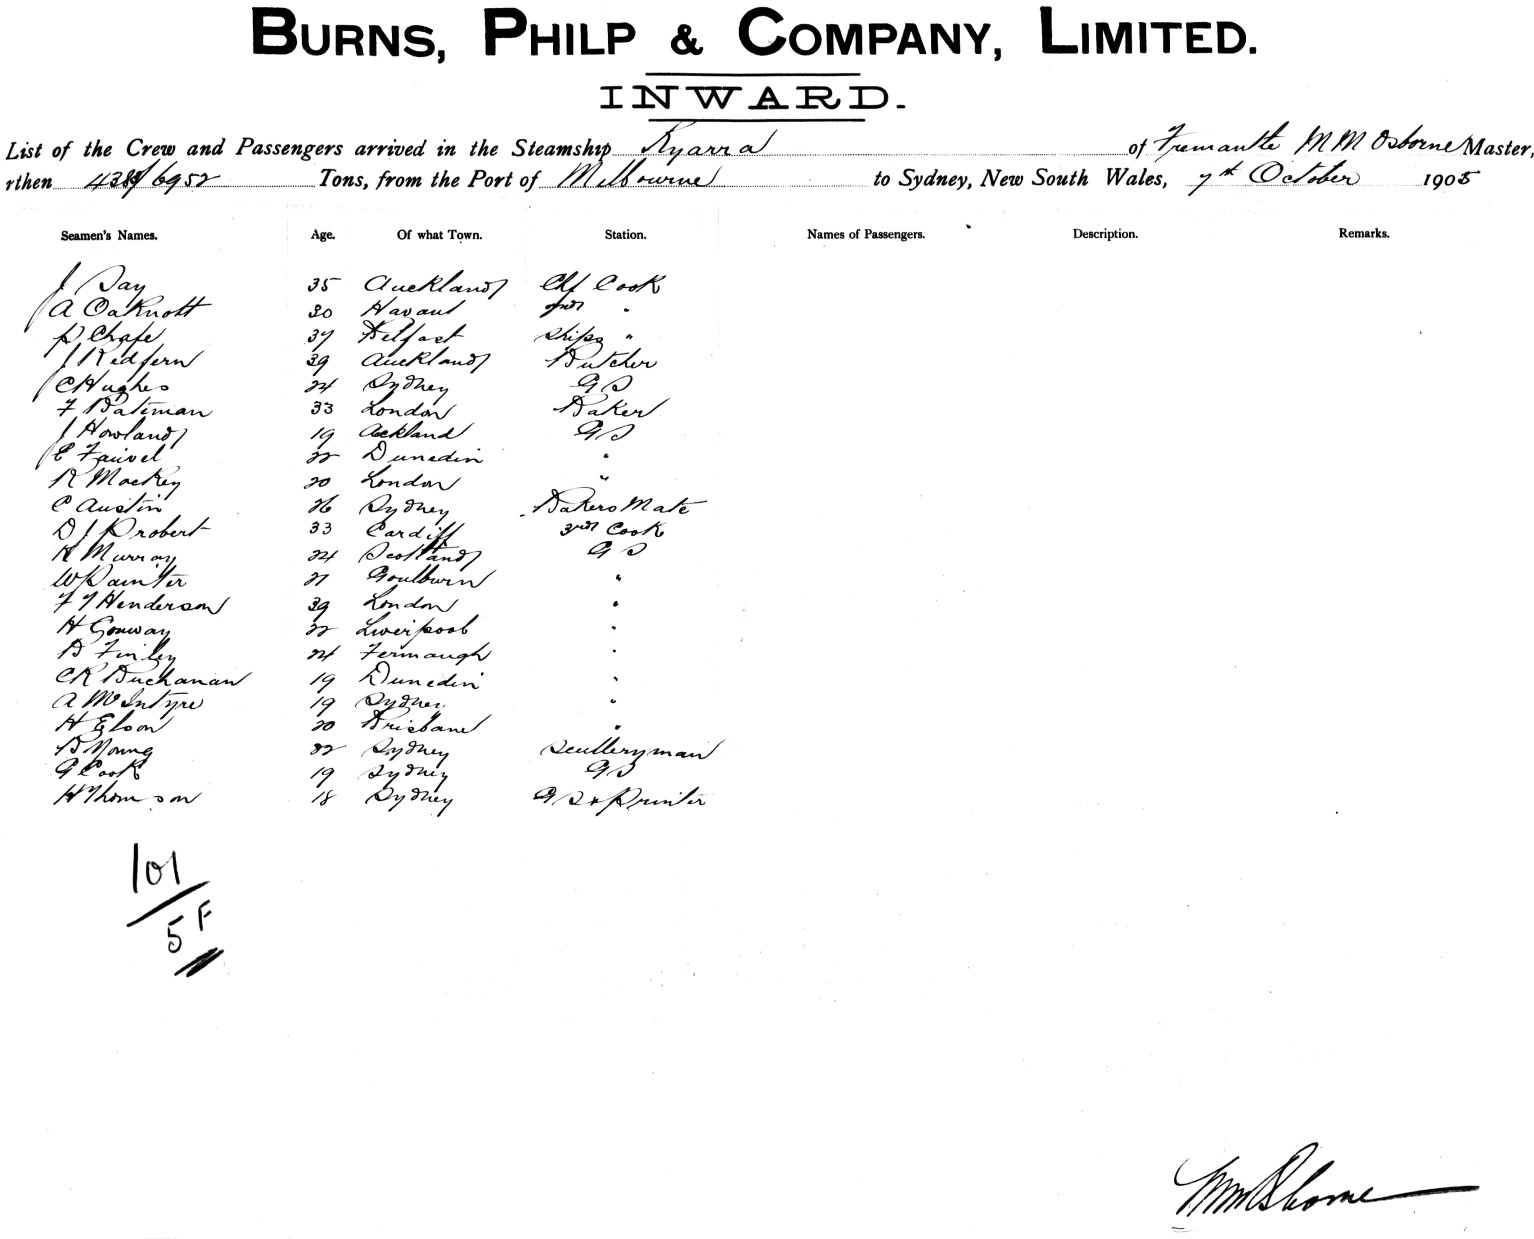 BURNS, PHILP & COMPANY, LIMITED.
INWARD.
List of the Crew and Passengers arrived in the Steamship Kyarra of Fremantle M M Osborne Master,
rthen 4383/6952 Tons, from the Port of Melbourne to Sydney, New South Wales, 7th October 1905
Seamen's Names. Age. Of what Town. Station. Names of Passengers. Description. Remarks.
J Day 35 Auckland Chf Cook
A Oaknott 30 Havant 2nd "
P Chafe 37 Belfast Ships "
J Redfern 39 Auckland Butcher
C Hughes 24 Sydney G S
F Bateman 33 London Baker
J Howland 19 Ackland G S
E Fauvel 22 Dunedin "
R Mackey 20 London "
C Austin 26 Sydney Bakers Mate
D J Probert 33 Cardiff 3rd Cook
H Murray 24 Scotland G S
W Painter 21 Goulburn "
F J Henderson 39 London "
H Conway 22 Liverpool "
B Finley 24 Fermaugh "
C R Buchanan 19 Dunedin "
A McIntyre 19 Sydney "
H Elson 20 Brisbane "
B Young 22 Sydney Scullery man
G Cook 19 Sydney G S
H Thomson 18 Sydney G S & Printer
101
5 F
M M Osborne